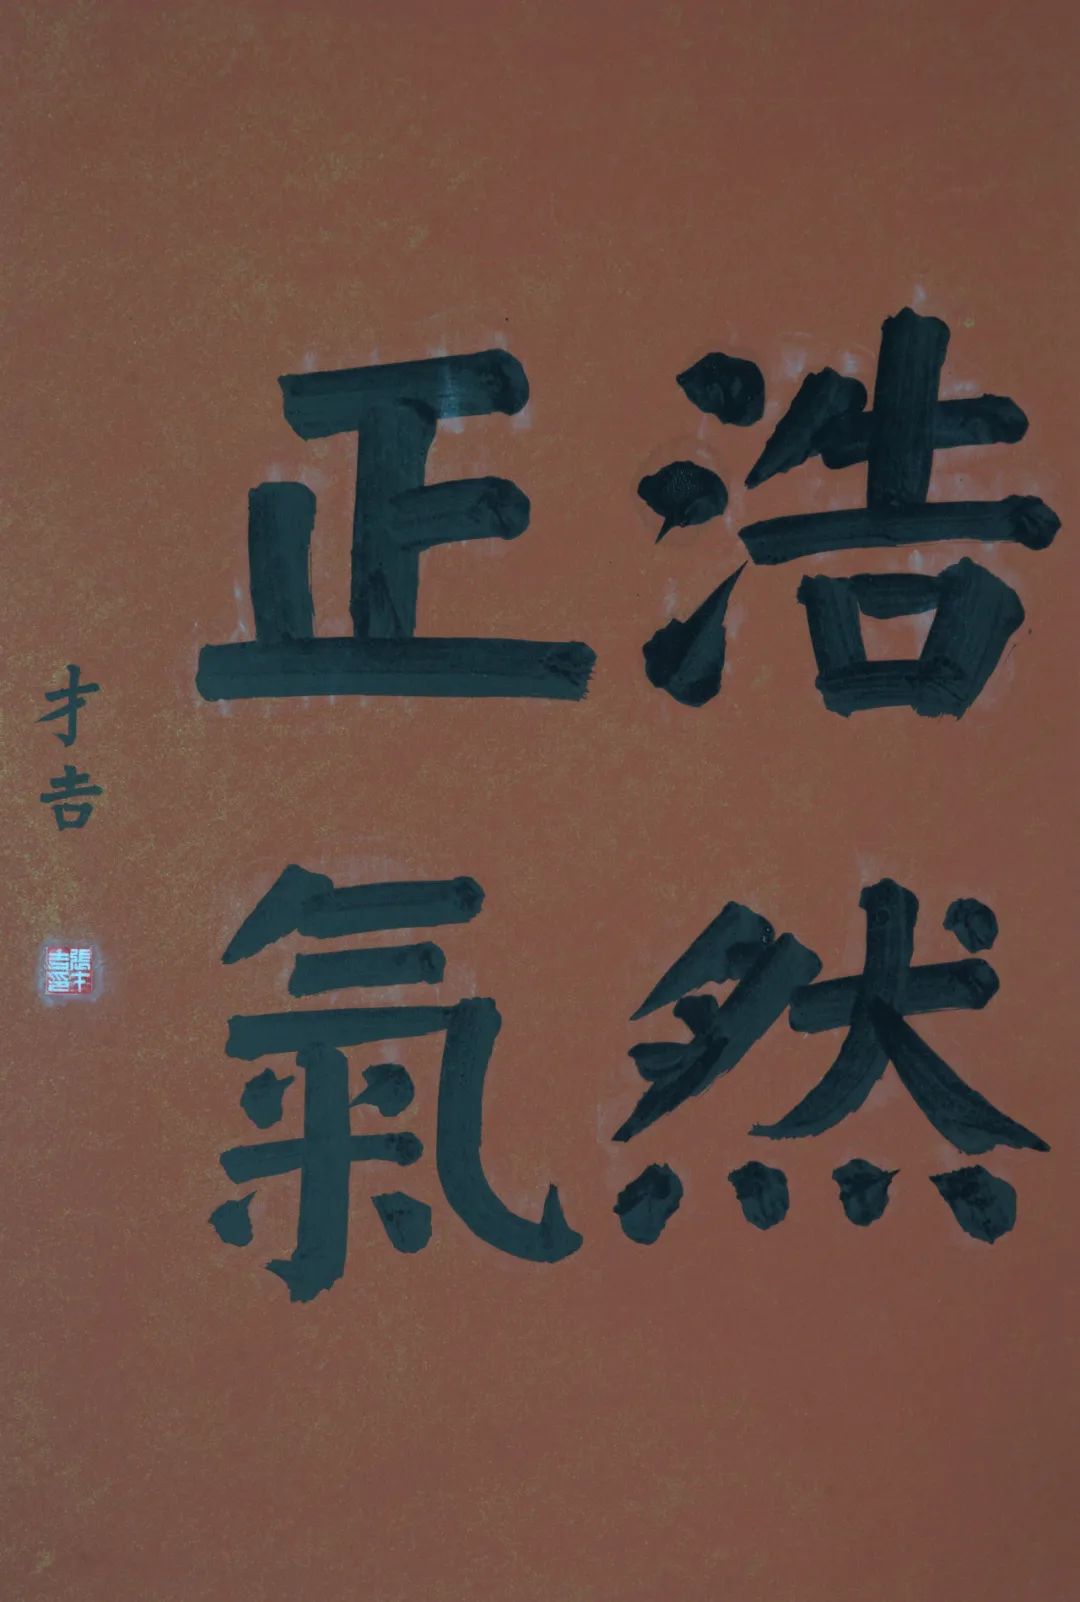 浩然
正氣
才吉